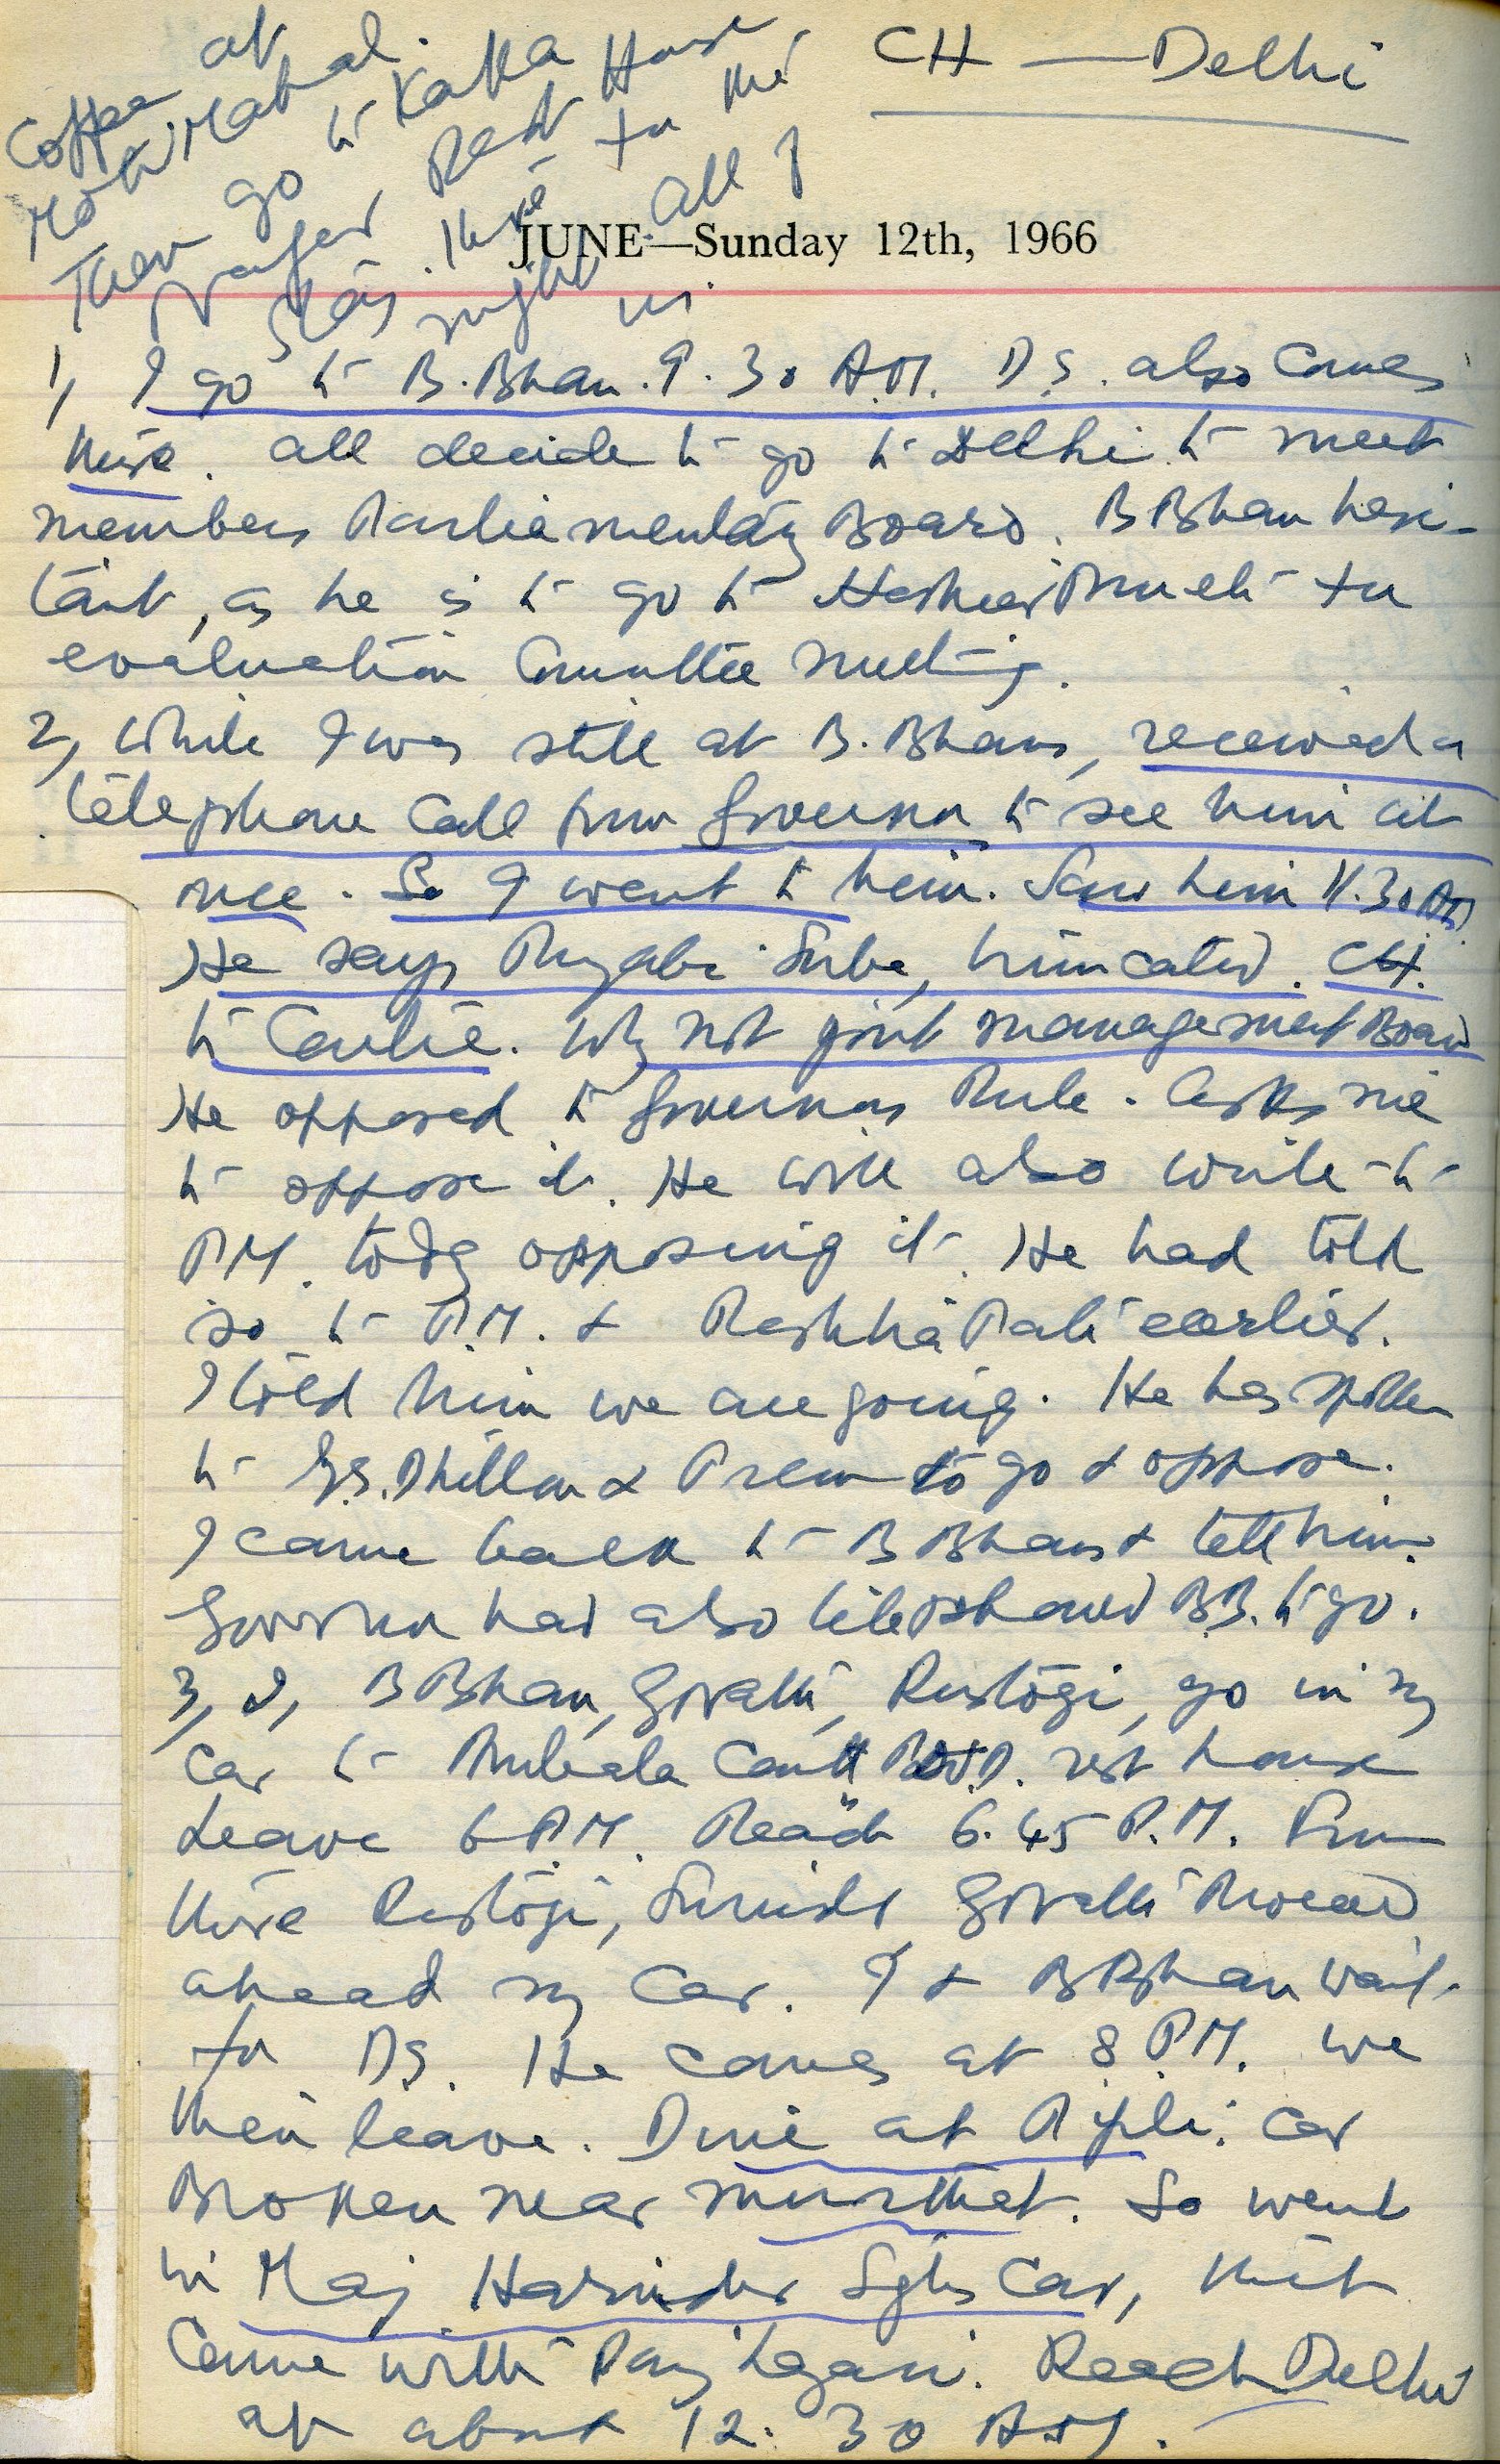 CH — Delhi
Coffee at
Moti Mahal.
Then go to Kakka
Nagar, Rest House,
Stay there for the
night all of
us.
JUNE—Sunday 12th, 1966
1, I go to B. Bhan. 9.30 A.M. D.S. also comes
there. All decide to go to Delhi to meet
members Parliamentary Board. B Bhan hesi-
tant, as he is to go to for
evaluation Committee meeting.
2, While I was still at B. Bhans, received a
telephone call from Governor to see him at
once. So I went to him. Saw him 11.30 AM
He says Punjabi Suba, truncated. CH.
to Centre. Why not joint management Board
He opposed to Governors Rule. Asks me
to oppose it. He will also write to
P.M. today opposing it. He had told
so to P.M. & Rashtrapati earlier.
I told him we are going. He has spoken
to G.S. Dhillon & Prem to go & oppose.
I came back to B Bhans & tell him.
Governor had also telephoned B.B. to go.
3, I, B Bhan, Rustogi, go in my
car to Ambala Cantt P.W.D. rest house
Leave 6 P.M. Reach 6.45 P.M. From
there Rustogi, Surinder proceed
ahead my Car. I & B Bhan wait
for D.S. He comes at 8 P.M. We
then leave. Dine at Pipli. Car
Broken near Murthal. So went
in Maj Harinder Sghs Car, that
came with. Reach Delhi
at about 12.30 AM.